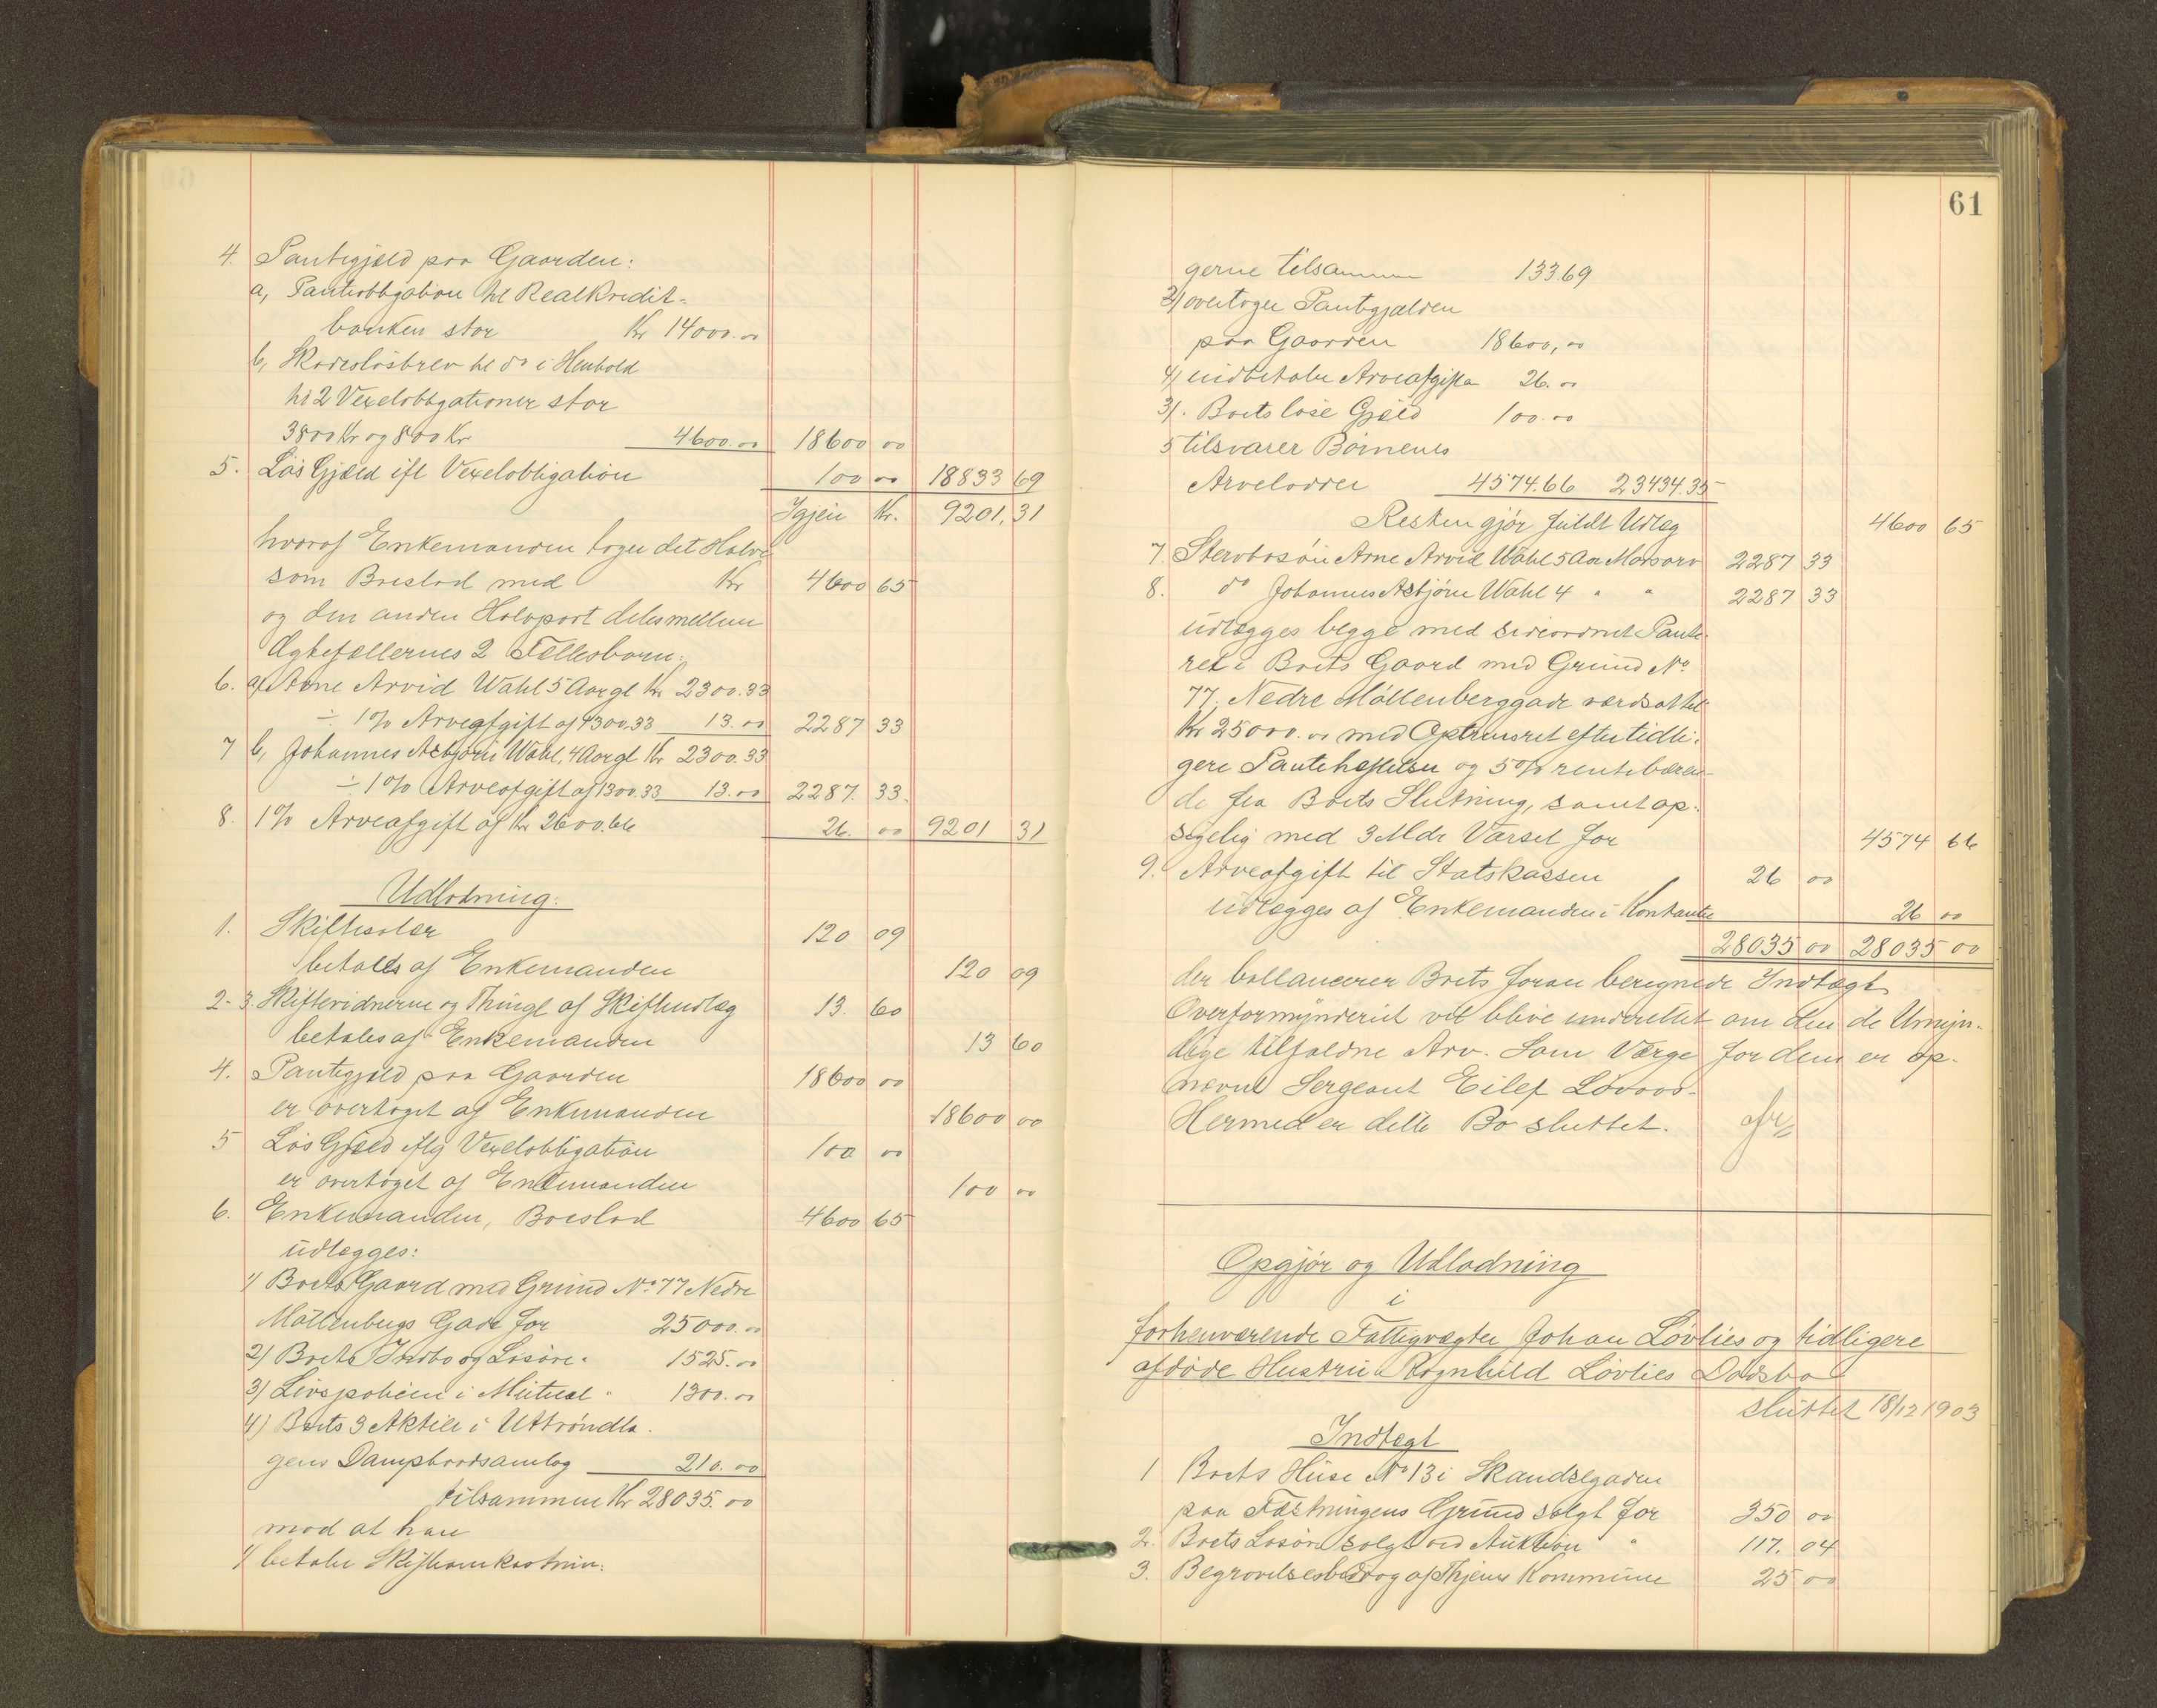 4. Pantegjæld paa Gaarden:
a, Pantobligation til Realkredit-
banken stor Kr 14000.00
b, Skadesløsbrev til do i Henhold
til 2 Vexelobligationer stor
3800 Kr og 800 Kr 4600.00 18600 00
5. Løs Gjæld ifl Vexelobligation 100 00 18833 69
Igjen Kr. 9201.31
hvoraf Enkemanden tager det Halve
som Boeslod med Kr 4600 65
og den anden Halvpart deles mellem
Ægtefællernes 2 Fællesbørn:
6. a, Arne Arvid Wahl 5 Aar gl Kr 2300.33
÷ 1% Arveafgift af 1300.33 13.00 2287 33
7 b, Johannes Asbjørn Wahl, 4 Aar gl Kr 2300.33
÷ 1% Arveafgift af 1300.33 13.00 2287. 33.
8. 1% Arveafgift af Kr 2600.66 26. 00 9201 31
Udlodning:
1. Skiftesalær 120 09
betales af Enkemanden 120 09
2-3. Skiftevidnerne og Thingl af Skifteudlæg 13. 60
betales af Enkemanden 13 60
4. Pantegjæld paa Gaarden 18600 00
er overtaget af Enkemanden 18600 00
5 Løs Gjæld iflg Vexelobligation 100 00
er overtaget af Enkemanden 100 00
6. Enkemanden, Boeslod 4600 65
udlægges:
1) Boets Gaard med Grund No 77 Nedre
Møllenbergs Gade for 25000.00
2) Boets Indbo og Løsøre " 1525.00
3) Livspolicen i Mutual " 1300.00
4) Boets 3 Aktier i Uttrøndela.
gens Dampbaadsamlag 210.00
tilsammen Kr 28035.00
mod at han
1) betaler Skifteomkostnin:
61
gerne tilsammen 133.69
2) overtager Pantegjælden
paa Gaarden 18600,00
4) indbetaler Arveafgiften 26.00
3). Boets løse Gjæld 100.00
5 tilsvarer Børnenes
Arvelodder 4574.66 23434.35
Resten gjør fuldt Udlæg 4600 65
7. Stervbosøn Arne Arvid Wahl 5 Aar Morsarv 2287 33
8. do Johannes Asbjørn Wahl 4 " " 2287 33
udlægges begge med sideordnet Pante-
ret i Boets Gaard med Grund No
77. Nedre Møllenberggade værdsat til
Kr 25000.00 med Optrinsret efter tidli:
gere Pantehæftelser og 5% rentebæren-
de fra Boets Slutning, samt op-
sigelig med 3 Mdr Varsel for 4574 66
9. Arveafgift til Statskassen 26 00
udlægges af Enkemanden i Kontanter 26 00
28035 00 28035 00
der ballancerer Boets foran beregnede Indtægt
Overformynderiet vil blive underrettet om den de Umyn-
dige tilfaldne Arv. Som Værge for dem er op-
nævnt Sergeant Eilef Løvaas.
Hermed er dette Bo sluttet.
Opgjør og Udlodning
i
forhenværende Fattigvægter Johan Løvlies og tidligere
afdøde Hustru Ragnhild Løvlies Dødsbo
sluttet 18/12 1903
Indtægt
1 Boets Huse No 13 i Skandsegaden
paa Fæstningens Grund solgt for 350 00
2. Boets Løsøre solgt ved Auktion " 117. 04
3. Begravelsesbidrag af Thjems Kommune 25 00